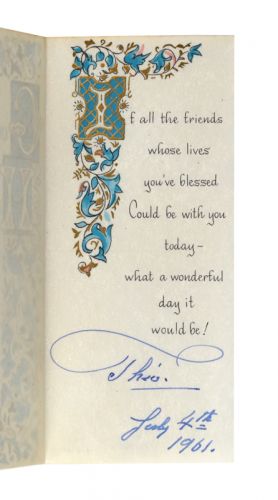 If all the friends
whose lives
you've blessed
Could be with you
today-
what a wonderful
day it
would be!
July 4th
1961.